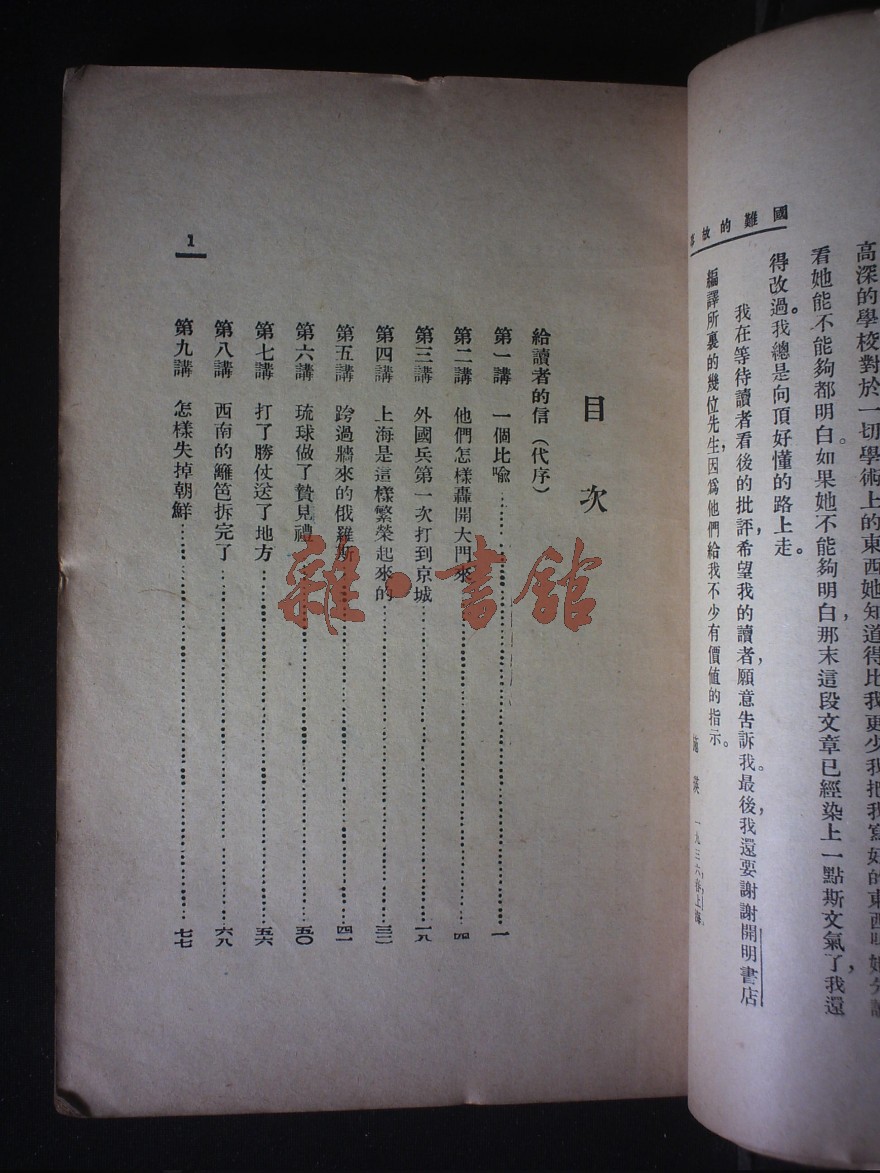 國難的故事
高深的學校對於一切學術上的東西她知道得比我更少我把我寫好的東西
看她能不能夠都明白。如果她不能夠明白，那末這段文章已經染上一點斯文氣了，我還
得改過。我總是向頂好懂的路上走。
我在等待讀者看後的批評，希望我的讀者願意告訴我。最後，我還要謝謝開明書店
編譯所裏的幾位先生，因爲他們給我不少有價値的指示。
一九三六，春，上海
目次
給讀者的信（代序）
第一講　一個比喩……一
第二講　他們怎樣轟開大門來……四
第三講　外國兵第一次打到京城……一八
第四講　上海是這樣繁榮起來的……三二
第五講　跨過牆來的俄羅斯……四一
第六講　琉球做了贄見禮……五〇
第七講　打了勝仗送了地方……五六
第八講　西南的籬笆拆完了……六八
第九講　怎樣失掉朝鮮……七七
1
雜·書館